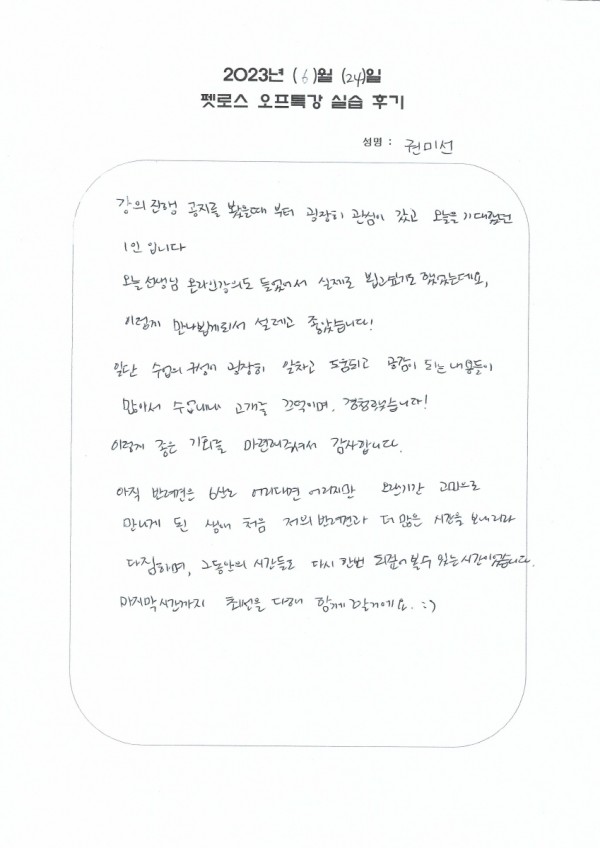 2023년 (6)월 (24)일
펫로스 오프특강 실습 후기
성명 : 권미선
강의 진행 공지를 봤을때 부터 굉장히 관심이 갔고 오늘을 기대했던
1인 입니다
오늘 선생님 온라인강의도 들었어서 실제로 뵙고싶기도 했었는데요,
이렇게 만나뵙게되서 설레고 좋았습니다!
일단 수업의 구성이 굉장히 알차고 도움되고 공감이 되는 내용들이
많아서 수업내내 고개를 끄덕이며, 경청했습니다!
이렇게 좋은 기회를 마련해주셔서 감사합니다.
아직 반려견은 6살로 어리다면 어리지만 오랜기간 고민으로
만나게 된 생애 처음 저의 반려견과 더 많은 시간을 보내리라
다짐하며, 그동안의 시간들도 다시 한번 되짚어 볼 수 있는 시간이었습니다.
마지막 시간까지 최선을 다해 함께 할거에요. :)